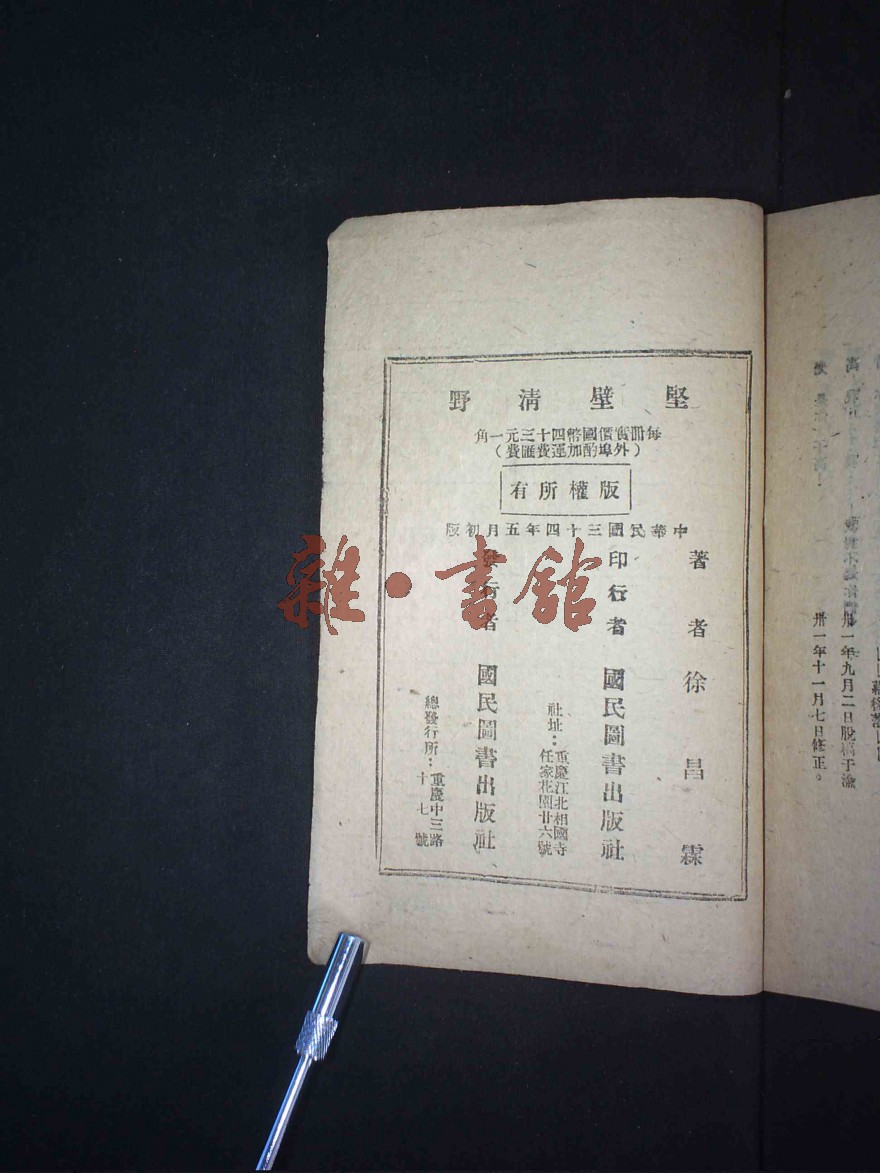 堅壁清野
每冊實價國幣四十三元一角
(外埠酌加運費匯費)
版權所有
中華民國三十四年五月初版
著者徐昌霖
印行者國民圖書出版社
社址:重慶江北相國寺
任家花園廿六號
發行者國民圖書出版社
總發行所:重慶中三路
十七號
卅一年九月二日脫稿于渝
卅一年十一月七日修正。
雜·書館